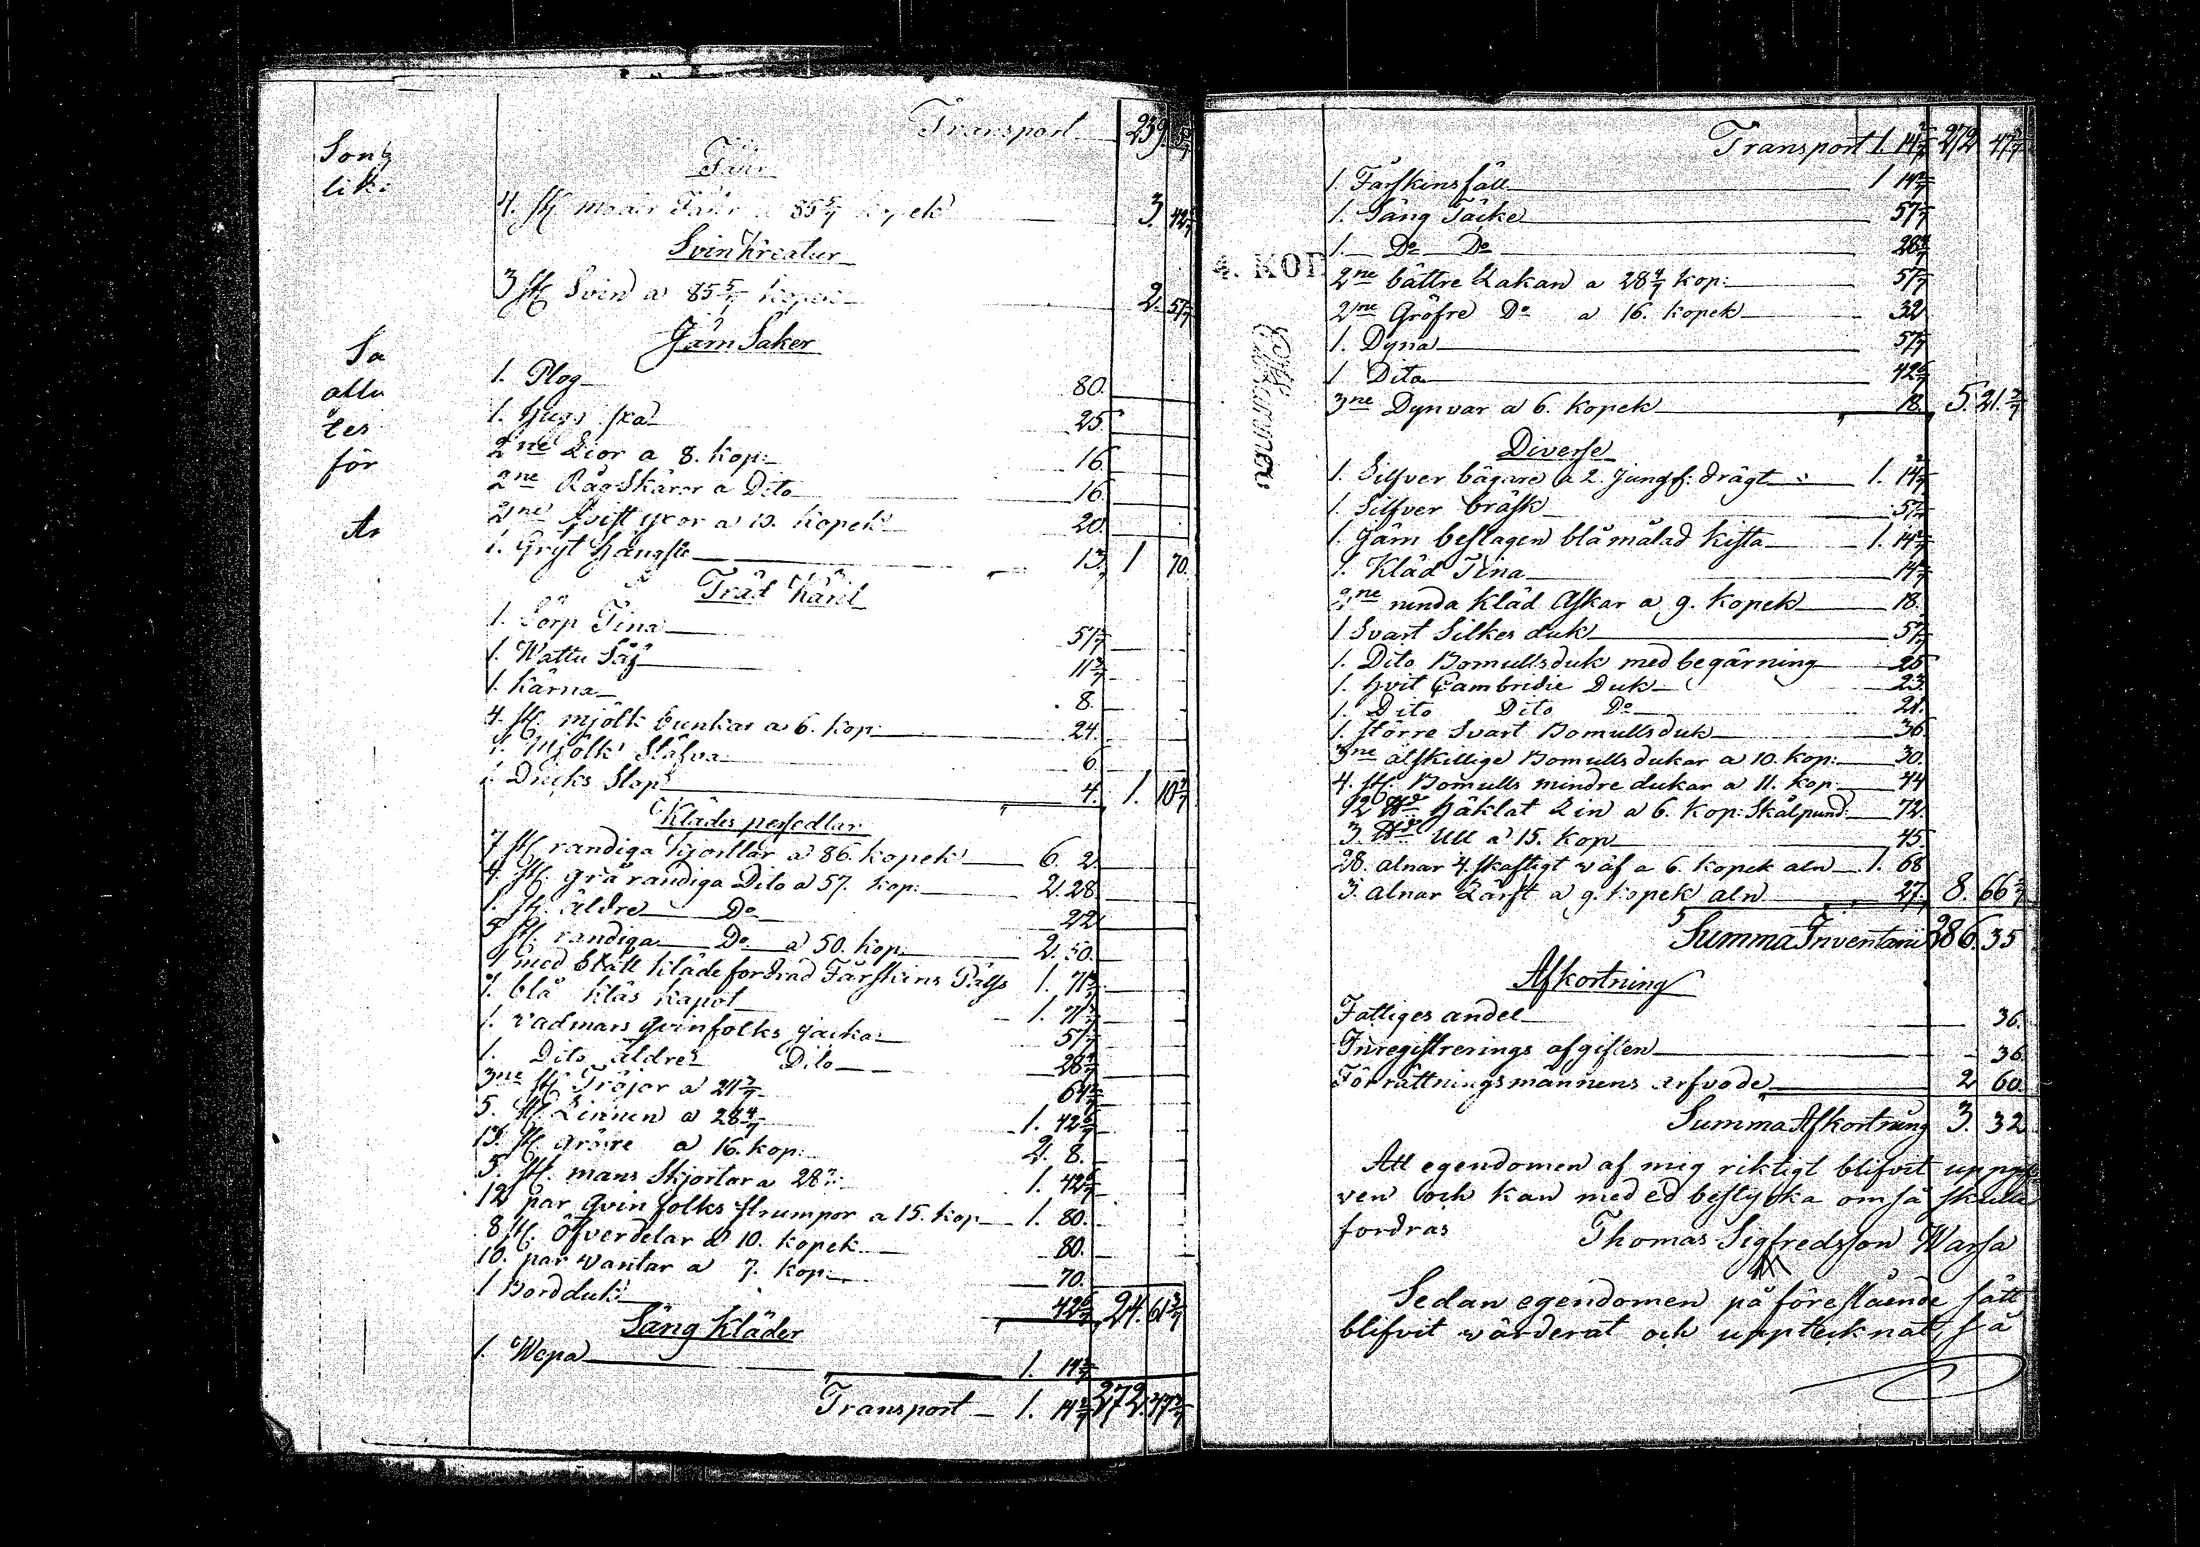 Sont
lik:
Sa
allu
tes
för
År
Transport 239.
Får
4. st. mödr Får a 85 5/7 kopek 3. 42 6/7
Svin Kreatur
3 st. Svin a 85 5/7 kopek 2. 57 1/7
Järn Saker
1. Plog 80.
1. Hugg yxa 25
2ne Lior a 8. kop: 16
2ne Råg Skäror a Dito 16.
2ne Qvist yxor a 10. kopek 20.
1. Gryt hängsle 13. 1 70.
Träd Käril
1. Sörp Tina 57 1/7
1. Wattu Såj 11 3/7
1. Kärna 8.
4. st. mjölk bunkar a 6. kop 24.
1. Mjölk Stäfva 6
1. Dricks Stop 4. 1. 10 4/7
Klädes persedlar
7 st. randiga kjortlar a 86. kopek 6. 2.
4. st. grå randiga Dito a 57. kop: 2. 28.
1. st. äldre Do 22
5 st. randiga Do a 50. kop 2. 50.
1 med blått kläde fordrad Fårskins Päls 1. 71 3/7
1. blå kläs kapot 1. 71 3/7
1. vadmars qvinfolks jacka 57 1/7
1. Dito äldre Dito 28 4/7
3ne st. Tröjor a 21 3/7 64 2/7
5. st. Linnen a 28 4/7 1. 42 6/7
13. st. gröfre a 16. kop: 2. 8.
5. st. mans Skjortor a 28 4/7 1. 42 6/7
12 par qvinfolks strumpor a 15. kop 1. 80.
8 st. Öfverdelar a 10. kopek 80.
10. par vantar a 7. kop: 70.
1 Bordduk 42 6/7 24. 61 3/7
Säng Kläder
1. Wepa 1. 14 2/7
Transport 1. 14 2/7 272. 47 3/7
4. KOP
Transport 1. 14 2/7 272 47 3/7
1. Fårskinsfäll 1 14 2/7
1. Säng Täcke 57 1/7
1. Do Do 28 4/7
2ne bättre Lakan a 28 4/7 kop: 57 1/7
2ne Gröfre Do a 16. kopek 32
1. Dyna 57 1/7
1 Dito 42 6/7
3ne Dynvar a 6. kopek 18. 5. 21 3/7
Diverse
1. Silfver bägare a 2. Jungf: drägt 1. 14 2/7
1. Silfver bräsk 57 1/7
1. Järn beslagen blå målad kista 1. 14 2/7
1. Kläd Tina 14 2/7
2ne runda Kläd Askar a 9. kopek 18.
1 Svart Silkes duk 57 1/7
1. Dito Bomullsduk med begärning 25
1. Hvit Cambridie Duk 23.
1. Dito Dito Do 21.
1. större Svart Bomullsduk 36
3ne åtskillige Bomulls dukar a 10. kop: 30.
4. st. Bomulls mindre dukar a 11. kop: 44
12 Häklat Lin a 6. Kop: Skålpund 72.
3. Ull a 15. kop 45.
28. alnar 4. skaftigt väf a 6. kopek aln 1. 68
3. alnar Lärft a 9. kopek aln 27. 8. 66 2/7
Summa Inventarii 286. 35
Afkortning
Fattiges andel 36.
Inregistrerings afgiften 36
Förrättningsmännens arfvode 2 60.
Summa Afkortning 3. 32
Att egendomen af mig riktigt blifvit uppgif
ven och kan med ed bestyrka om så skulle
fordras Thomas Sigfredsson Warsa
Sedan egendomen på föreståënde sätt
blifvit värderat och upptecknat, så